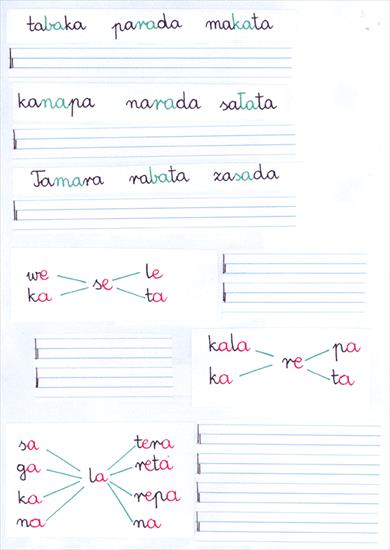 tabaka parada makata
kanapa narada sałata
Tamara rabata zasada
we se le
ka ta
kala re pa
ka ta
sa la tera
ga reta
ka repa
na na